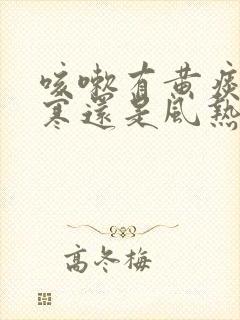 咳嗽有黃痰
寒還是風熱
高冬梅